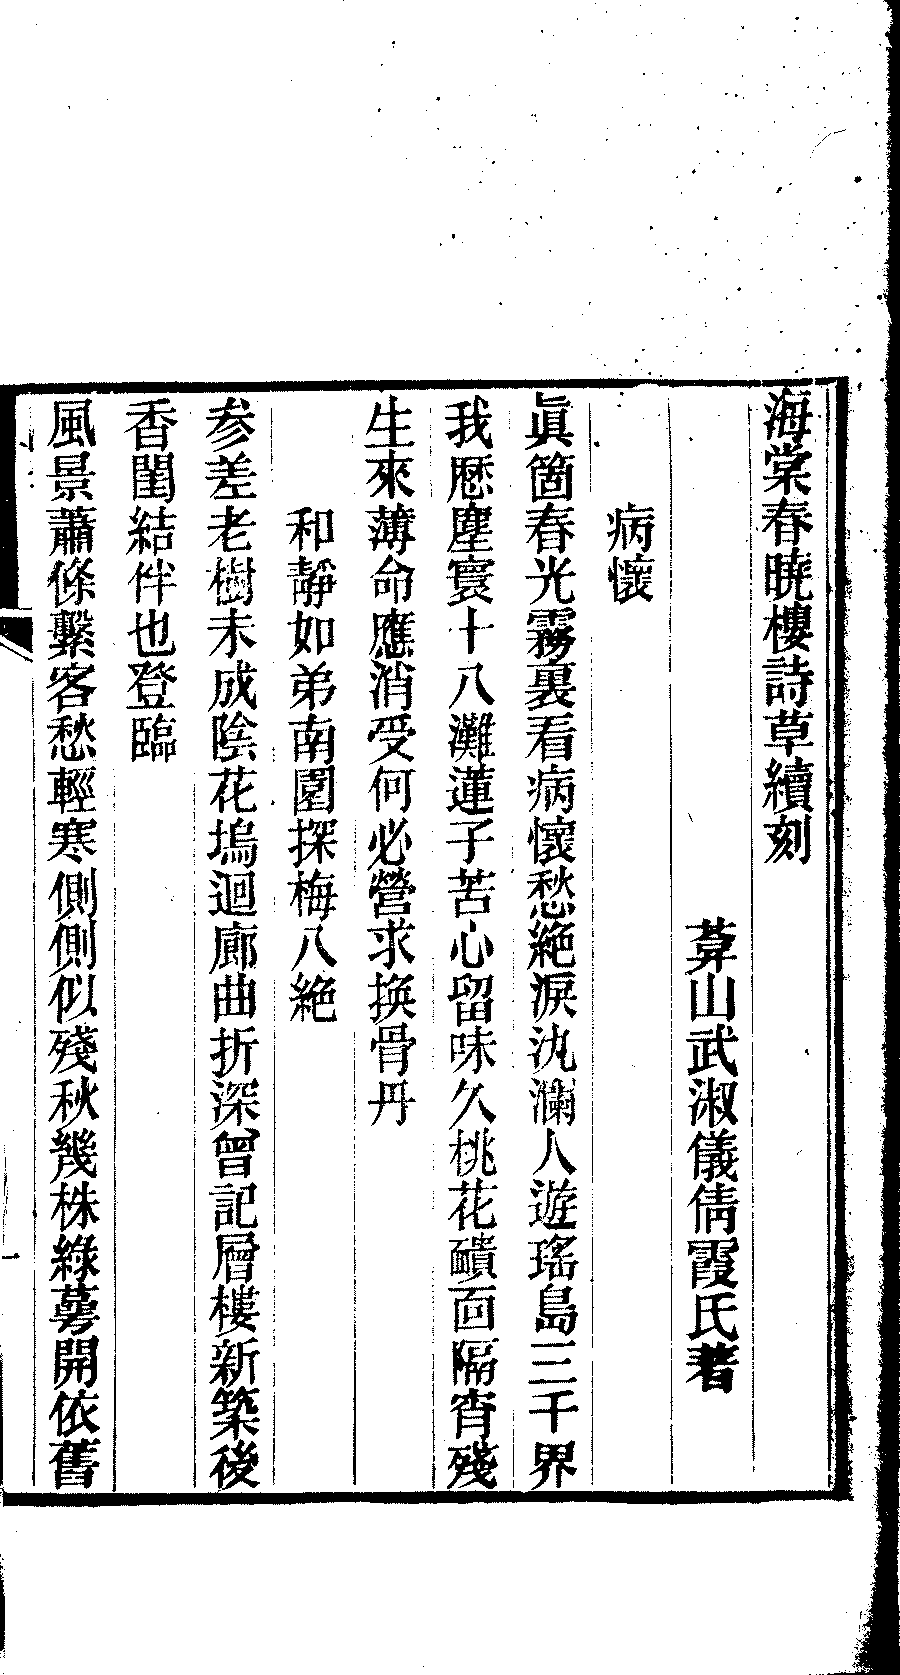 海棠春曉樓詩草續刻
萛山武淑儀倩霞氏著
病懷
眞箇春光霧裏看病懷愁絶淚汍瀾人遊瑤島三千界
我厯塵寰十八灘蓮子苦心留味久桃花靧面隔宵殘
生來薄命應消受何必營求換骨丹
和靜如弟南園探梅八絶
参差老樹未成陰花塢迴廊曲折深曾記層樓新築後
香閨結伴也登臨
風景蕭條繫客愁輕寒側側似殘秋幾株綠萼開依舊
一